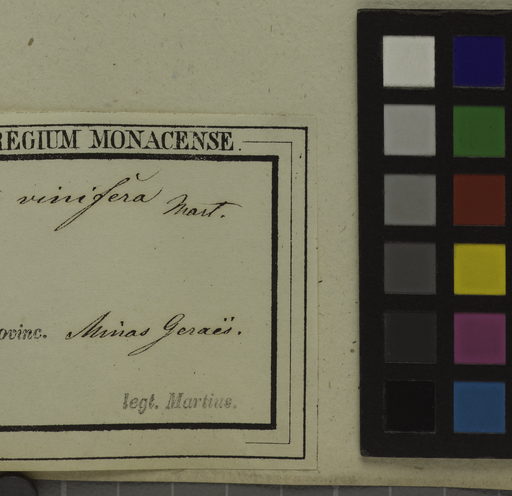 REGIUM MONACENSE.
vinifera Mart.
ovinc. Minas Geraës.
legt. Martius.